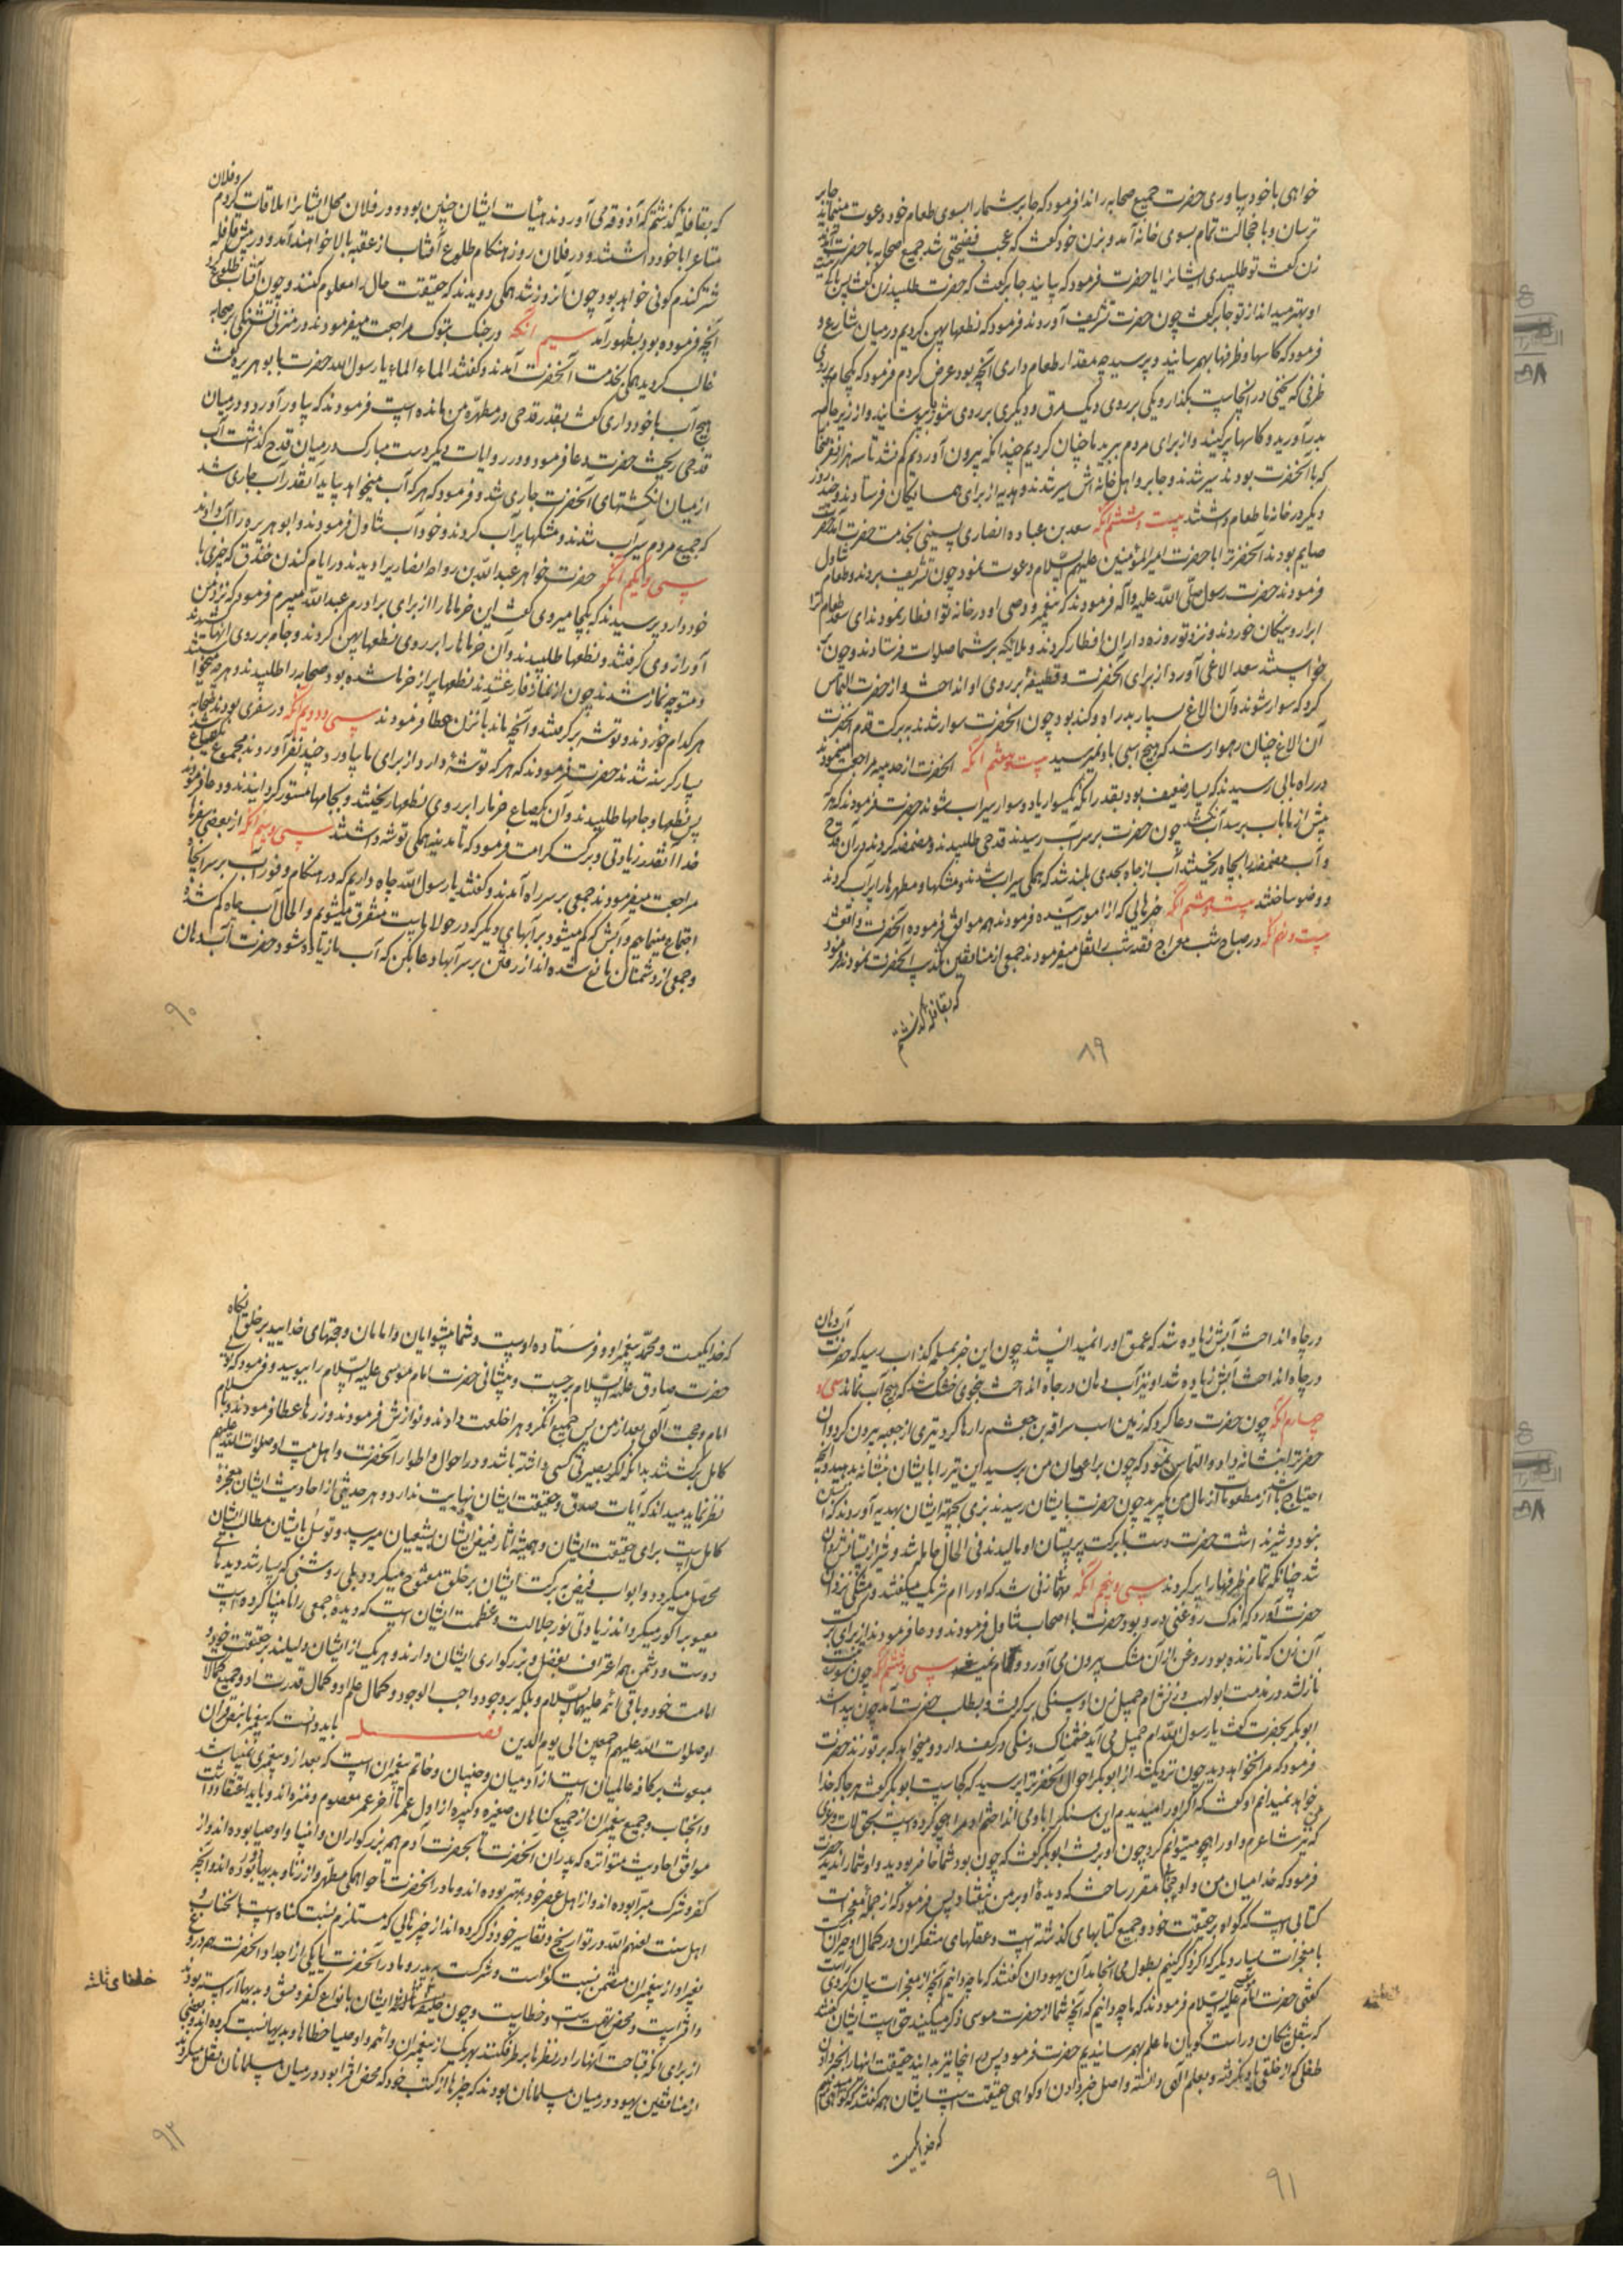 خواهی با خود بیاوری حضرت جمیع صحابه را ندا فرمود که جابر شما را بسوی طعام خود دعوت مینماید جابر
ترسان و با خجالت تمام بسوی خانه آمد و بزن خود گفت که عجب فضیحتی شد جمیع صحابه با حضرت آمدند
زن گفت تو طلبیدی ایشانرا یا حضرت فرمود که بیایند جابر گفت که حضرت طلبید زن گفت پس
او بهتر میداند از تو جابر گفت چون حضرت تشریف آوردند فرمود که نطعها پهن کردیم در میان شارع و
فرمود که کاسها و ظرفها بهم رسانید و پرسید چه مقدار طعام داری آنچه بود عرض کردم فرمود که
ظرفی که یخنی در آنجاست بگذار و یکی بر روی دیک مرق و دیگری بر روی تنور بپوشانید و از زیر جامه
بدر آورید و کاسها پر کنید و از برای مردم ببرید ما چنان کردیم چندانکه بیرون آوردیم کم نشد تا سه هزار نفر
که با آنحضرت بودند سیر شدند و جابر و اهل خانه‌اش سیر شدند و هدیه از برای همسایگان فرستادند و چند روز
دیگر در خانه ما طعام داشتند بیست و ششم آنکه سعد بن عباده انصاری پسینی بخدمت حضرت آمد
صایم بودند آنحضرترا با حضرت امیرالمؤمنین علیهم السلام دعوت نمود چون تشریف بردند و طعام تناول
فرمودند حضرت رسول صلی الله علیه و آله فرمودند که پیغمبر و وصی او در خانه تو افطار نمودند ای سعد طعام ترا
ابرار و نیکان خوردند و نزد تو روزه داران افطار کردند و ملایکه بر شما صلوات فرستادند و چون
خواستند سعد الاغی آورد از برای آنحضرت و قطیفهٔ بر روی او انداخت و از حضرت التماس
کرد که سوار شوند و آن الاغ بسیار بد راه و کند بود چون آنحضرت سوار شدند به برکت قدم آنحضرت
آن الاغ چنان رهوار شد که هیچ اسبی باو نمیرسید بیست و هفتم آنکه آنحضرت از حدیبیه مراجعت میفرمودند
در راه بابی رسیدند که بسیار ضعیف بود بقدر آنکه یکسوار یا دو سوار سیراب شوند حضرت فرمودند که هر که
پیش از ما بآب برسد آب نکشد چون حضرت بر سر آب رسیدند قدحی طلبیدند و مضمضه کردند در آن قدح
و آب مضمضه را بچاه ریختند آب از چاه بحدی بلند شد که همگی سیراب شدند و مشکها و مطهرها را پر آب کردند
و وضو ساختند بیست و هشتم آنکه خبرهایی که از امور آینده فرمودند همه موافق فرموده آنحضرت واقع شد
بیست و نهم آنکه در صباح شب معراج قصه شب را نقل میفرمودند جمعی از منافقین تکذیب آنحضرت نمودند فرمود
که بقافله گذشتم
۸۹
که بقافله گذشتم که آذوقه می آوردند هیأت ایشان چنین بود و در فلان محل ایشانرا ملاقات کردم و فلان
متاع را با خود داشتند و در فلان روز هنگام طلوع آفتاب از عقبه بالا خواهند آمد و در پیش قافله
شتر گندم گونی خواهد بود چون آنروز شد همگی دویدند که حقیقت حال را معلوم کنند و چون آفتاب طلوع کرد
آنچه فرموده بود بظهور آمد سیم آنکه در جنگ تبوک مراجعت میفرمودند در منزلی تشنگی بر صحابه
غالب گردید همگی بخدمت آنحضرت آمدند و گفتند الماء الماء یا رسول الله حضرت با بو هریره گفت
هیچ آب با خود داری گفت بقدر قدحی در مطهره من مانده است فرمودند که بیاور آورد و در میان
قدحی ریخت حضرت دعا فرمود و در روایات دیگر دست مبارک در میان قدح گذاشت آب
از میان انگشتهای آنحضرت جاری شد و فرمود که هر که آب میخواهد بیاید آنقدر آب جاری شد
که جمیع مردم سیراب شدند و مشکها پر آب کردند و خود آب تناول فرمودند و ابو هریره را آب دادند
سی و یکم آنکه حضرت خواهر عبدالله بن رواحه انصاری را دیدند در ایام کندن خندق که خرمایی با
خود دارد پرسیدند که بکجا میروی گفت این خرماها را از برای برادرم عبدالله میبرم فرمود که نزد من
آور از وی گرفتند و نطعها طلبیدند و آن خرماها را بر روی نطعها پهن کردند و جامه بر روی آنها کشیدند
و متوجه نماز شدند چون از نماز فارغ شدند نطعها پر از خرما شده بود صحابه را طلبیدند و هر چه میخواستند
هر کدام خوردند و توشه برگرفتند و آنچه ماند بآنزن عطا فرمودند سی و دویم آنکه در سفری بودند صحابه
بسیار گرسنه شدند حضرت فرمودند که هر که توشهٔ دارد از برای ما بیاورد چند نفر آوردند مجموع یکصاع شد
پس نطعها و جامها طلبیدند و آن یکصاع خرما را بر روی نطعها ریختند و بجامها مستور گردانیدند و دعا فرمودند
خدا آنقدر زیادتی و برکت کرامت فرمود که تا مدینه همگی توشه داشتند سی و سیم آنکه از بعضی سفرها
مراجعت میفرمودند جمعی بر سر راه آمدند و گفتند یا رسول الله چاه داریم که در هنگام وفور آب بر سر آنجا
اجتماع مینماییم و آبش که کم میشود بر آبهای دیگر که در حوالی ماست متفرق میشویم و الحال آب چاه کم شده
و جمعی از دشمنان مانع شده‌اند از رفتن بر سر آبها دعا بکن که آب ما زیاد شود حضرت آب دهان
۹۰
در چاه انداخت آبش زیاده شد که عمق او را نمیدانستند چون این خبر بمسیلمه کذاب رسید که حضرت آب دهان
در چاه انداخت آبش زیاده شد او نیز آب دهان در چاه انداخت بنحوی خشک شد که هیچ آب نماند سی و
چهارم آنکه چون حضرت دعا کرد که زمین اسب سراقه بن جعشم را رها کرد تیری از جعبه بیرون کرد و بآن
حضرت بنشانه داد و التماس نمود که چون براعیان من برسید این تیر را بایشان بنشانه بدهید و آنچه
احتیاج باشد از مطعومات از مال من بگیرید چون حضرت بایشان رسیدند بزی بجهة ایشان بهدیه آوردند که
نبود و شیر نداشت حضرت دست با برکت بر پستان او مالیدند فی الحال حامله شد و شیر از پستانش روان
شد چنانکه تمام ظرفها را پر کردند سی و پنجم آنکه مهمان زنی شدند که او را ام شریک میگفتند و مشکی نزد آن
حضرت آورد که اندک روغنی در او بود حضرت با اصحاب تناول فرمودند و دعا فرمودند از برای
آن زن که تا زنده بود روغن از آن مشک بیرون می آورد و تمام نمیشد سی و ششم آنکه چون سوره تبت
نازل شد در مذمت ابولهب و زنش ام جمیل زن او سنگی برگرفت و بطلب حضرت آمد چون پیدا شد
ابوبکر بحضرت گفت یا رسول الله ام جمیل می آید خشمناک و سنگی در کف دارد و میخواهد که بر تو زند حضرت
فرمود که مرا نخواهد دید چون نزدیک شد از ابوبکر احوال آنحضرترا پرسید که کجاست ابوبکر گفت هر جا که خدا
میخواهد نمیدانم او گفت که اگر او را میدیدم این سنگرا باو می انداختم او مرا هجو کرده است بحق لات و عزی
که نیز شاعرم و او را هجو میتوانم کرد چون او برفت ابوبکر گفت که چون بود شما حاضر بودید و او شما را ندید حضرت
فرمود که خدا میان من و او حجابی مقرر ساخت که دیدهٔ او بر من نیفتاد پس فرمود که از جمله معجزات
کتابی است که گواه بر حقیقت خود و جمیع کتابهای گذشته است و عقلهای متفکران در کمال او حیران است
با معجزات بسیار دیگر که اگر ذکر کنیم بطول می انجامد آن یهودان گفتند که ما چه دانیم آنچه از معجزات بیان کردی
گفتی حضرت امام موسی علیه السلام فرمودند که ما چه دانیم که آنچه شما از حضرت موسی ذکر میکنید حق است ایشان گفتند
که بنقل نیکان و راست گویان ما علم بهم رسانیدیم حضرت فرمود پس در اینجا نیز بدانید حقیقت اینها را بخبر دادن
طفلی که از خلق یاد نگرفته و بعلم الهی دانسته و اصل خبر دادن او گواهی حقیقت است ایشان همه گفتند که گواهی میدهیم
که خدا یکیست
۹۱
که خدا یکیست و محمد پیغمبر او و فرستاده اوست و شما پیشوایان و امامان و حجتهای خدایید بر خلق آنگاه
حضرت صادق علیه السلام برجست و پیشانی حضرت امام موسی علیه السلام را ببوسید و فرمود که توئی
امام و حجت الهی بعد از من پس جمیع آنگروه را خلعت دادند و نوازش فرمودند و زرها عطا فرمودند و باسلام
کامل برگشتند بدانکه اگر بصیرتی کسی داشته باشد و در احوال و اطوار آنحضرت و اهل بیت او صلوات الله علیهم
نظر نماید میداند که آیات صدق و حقیقت ایشان نهایت ندارد و هر حدیثی از احادیث ایشان معجزهٔ
کامل است برای حقیقت ایشان و همیشه آثار فیض ایشان بشیعیان میرسد و توسل بایشان مطالب ایشان
محصل میگردد و ابواب فیض به برکت ایشان بر خلق مفتوح میگردد بلی روشنی که بسیار شد دیدهای
معیوبرا کور میگرداند زیادتی نور جلالت و عظمت ایشان است که دیدهٔ جمعی را نابینا کرده است
دوست و دشمن همه اعتراف بفضل و بزرگواری ایشان دارند و هر یک از ایشان دلیلند بر حقیقت خود و
امامت خود و باقی ائمه علیهم السلام و بلکه بر وجود واجب الوجود و کمال علم او و کمال قدرت او و جمیع کمالات
او صلوات الله علیهم اجمعین الی یوم الدین فصل باید دانست که پیغمبر ما بنص قرآن
مبعوث بر کافه عالمیان است از آدمیان و جنیان و خاتم پیغمبران است که بعد از او پیغمبری نمیباشد
و آنجناب و جمیع پیغمبران از جمیع گناهان صغیره و کبیره از اول عمر تا آخر عمر معصوم و منزه اند و باید اعتقاد داشت
موافق احادیث متواتره که پدران آنحضرت تا بحضرت آدم همه بزرگواران و انبیا و اوصیا بوده اند و از
کفر و شرک مبرا بوده اند و از اهل عصر خود بهتر بوده اند و مادر آنحضرت تا حوا همگی مطهر و از زنا و بدیها بوده اند و آنچه
اهل سنت لعنهم الله در تواریخ و تفاسیر خود ذکر کرده اند از چیزهایی که مستلزم نسبت گناه است بآنجناب و
بغیر او از پیغمبران و متضمن نسبت کفر است و شرکست بپدر و مادر آنحضرت یا یکی از اجداد آنحضرت همه دروغ
و افتراست و محض تهمت است و خطاست و چون خلیفه ایشان بانواع کفر و فسق و بدیها آراسته بودند
از برای آنکه قباحت آنها را در نظرها بر طرف کنند بهر یک از پیغمبران و ائمه و اوصیا خطاها و بدیها نسبت کرده اند و بعضی
از منافقین یهود در میان مسلمانان بودند که چیزها از کتب خود که محض افترا بود در میان مسلمانان نقل میکردند
خلفای ثلثه
۹۲